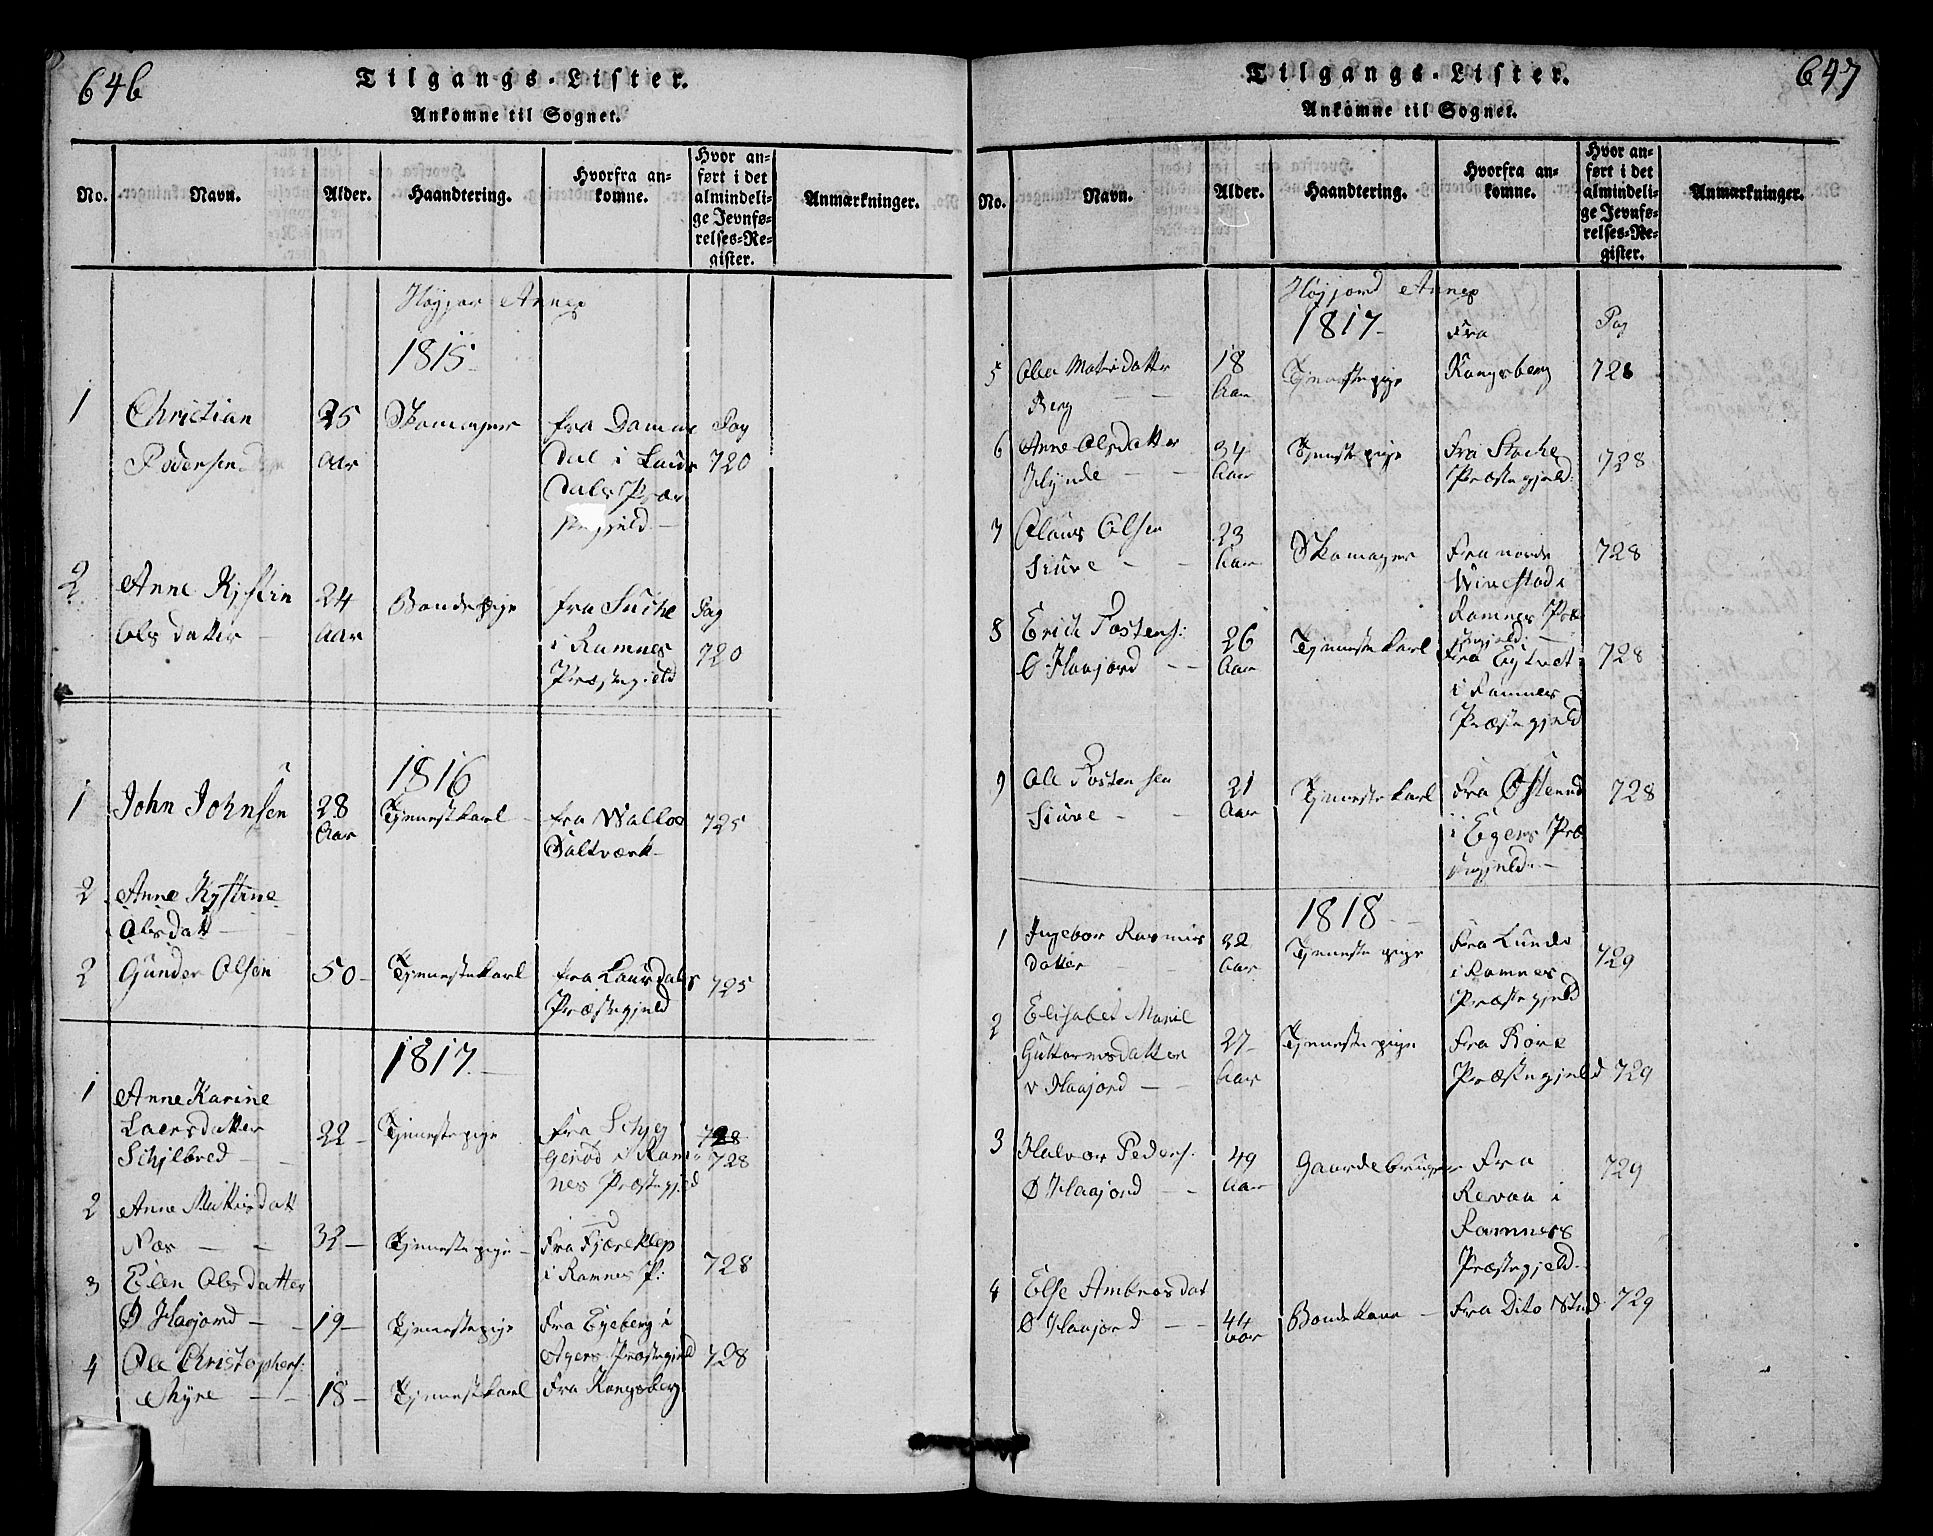 646
Tilgangs-Lister.
Ankomne til Sognet.
No.
Navn.
Alder.
Haandtering.
Hvorfra an-
komne.
Hvor an-
ført i det
almindeli-
ge Jevnfø-
relses-Re-
gister.
Anmærkninger.
Annex
1815
1
Christian
Pedersen
25
Aar
Skomager
fra
Dal i
Dals Præ-
stegjeld
Pag
720
2
Anne Kistin
Ols datter
24
Aar
Bondepige
fra
i Ramnes
Præstegield
Pag
720
1816
1
John Johnsen
28
Aar
Tjenestkarl
fra Walloe
Saltværk
725
2
Anne Kystine
Olsdatt
2
Gunder Olsen
50
Tjenestekarl
fra Laurdals
Præstegjeld
725
1817
1
Anne Karine
Laersdatter
22
Tjenestepige
fra
i Ram-
nes Præstegjeld
728
728
2
Anne
Næs
32
Tjenestepige
Fra Fjæreklep
i Ramnes P:
728
3
Elen Olsdatter
Ø Haajord
19
Tjenestepige
Fra Egeberg i
Agers Præstegjeld
728
4
Ole Christophers:
18
Tjenestkarl
Fra Kongsberg
647
Tilgangs-Lister.
Ankomne til Sognet.
No.
Navn.
Alder.
Haandtering.
Hvorfra an-
komne.
Hvor an-
ført i det
almindeli-
ge Jevnfø-
relses-Re-
gister.
Anmærkninger.
Høyjord Annex
1817
Fra
Pag
5
Berg
18
Aar
Tjenestepige
Kongsberg
728
6
Anne Olsdatter
Hynde
34
Aar
Tjenestepige
Fra
Præstegjeld:
728
7
Claus Olsen
Siuve
23
Aar
Skomager
Fra
Ramnes Præ-
stegjeld:
728
8
Erich
Ø Haajord
26
Aar
Tjenestekarl
Fra
i Ramnes
Præstegjeld
728
9
Ole
Siuve
21
Aar
Tjenestekarl
Fra
i Egers Præ-
stegjeld
728
1818
1
Ingebor Rasmus
datter
32
Aar
Tjenestepige
Fra Lunde
i Ramnes
Præstegjeld
729
2
Elisabet Marie
Guttormsdatter
v Haajord
27
Aar
Tjenestepige
Fra
Præstegjeld
729
3
Halvor Peders:
Ø Haajord
49
Aar
Gaardebruger
Fra
Revaa i
Ramness
Præstegjeld
729
4
Else Ambrosdat
Ø Haajord
44
Aar
Bondekone
Fra Dito Sted
729